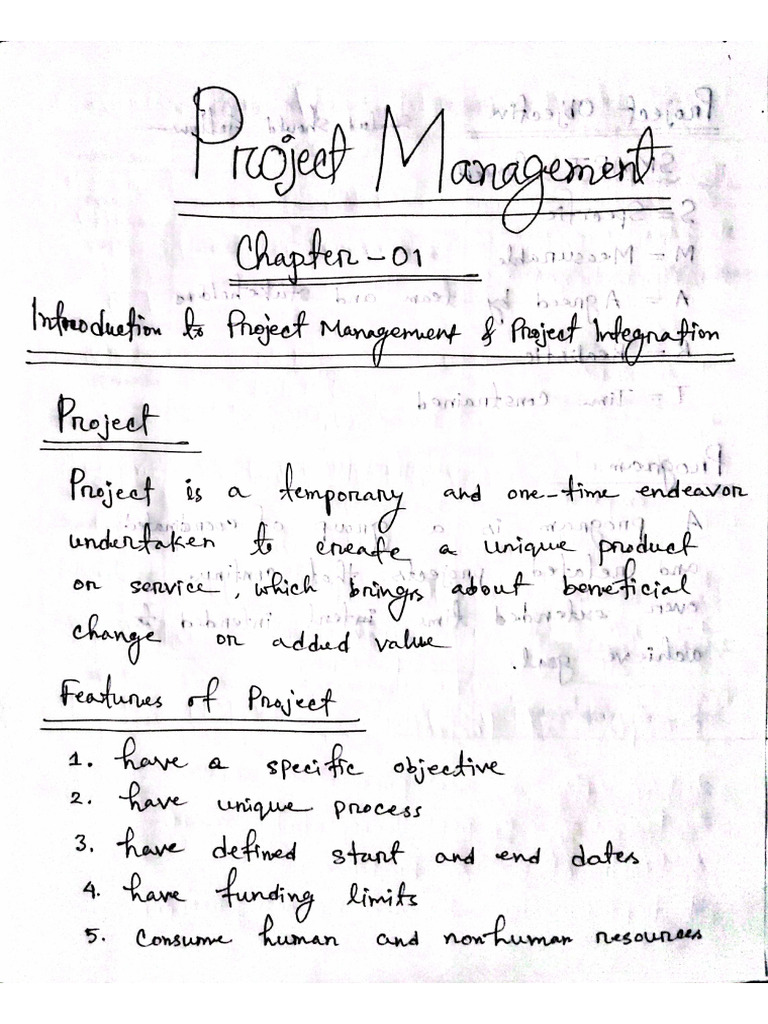 Project Management
Chapter - 01
Introduction to Project Management & Project Integration
Project
Project is a temporary and one-time endeavor
undertaken to create a unique product
or service, which brings about beneficial
change or added value
Features of Project
1. have a specific objective
2. have unique process
3. have defined start and end dates
4. have funding limits
5. Consume human and nonhuman resources